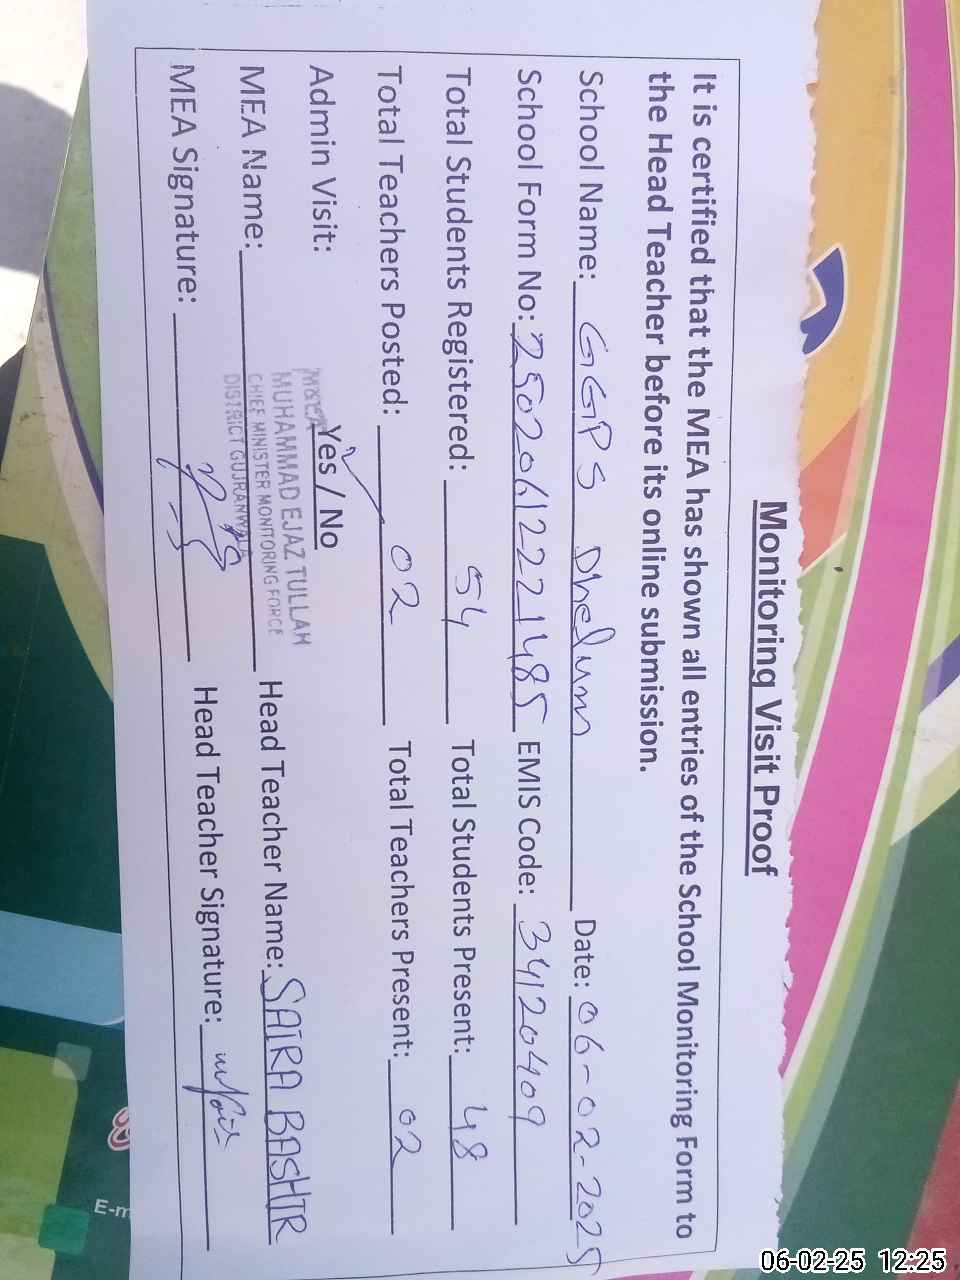 Monitoring Visit Proof
It is certified that the MEA has shown all entries of the School Monitoring Form to
the Head Teacher before its online submission.
School Name: GGPS Dhelum Date: 06-02-2025
School Form No: 25020612221485 EMIS Code: 34120409
Total Students Registered: 54 Total Students Present: 48
Total Teachers Posted: 02 Total Teachers Present: 02
Admin Visit: Yes / No
MUHAMMAD EJAZ TULLAH
CHIEF MINISTER MONITORING FORCE
DISTRICT GUJRANWALA
MEA Name: Head Teacher Name: SAIRA BASHIR
MEA Signature: Head Teacher Signature:
E-m
06-02-25 12:25